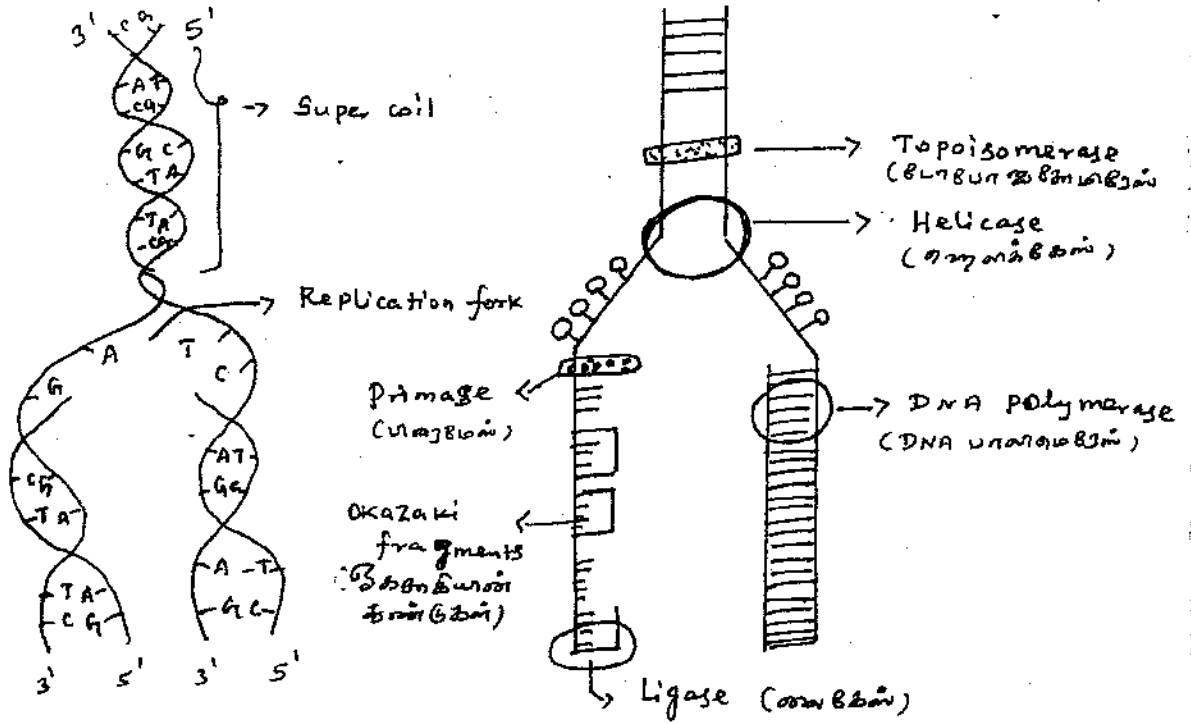 3' CG 5'
AT
CG
GC
TA
TA
CG
→ Super coil
→ Replication fork
A T
G C
CG
TA
TA
CG
AT
GG
A-T
GC
3' 5' 3' 5'
→ Topoisomerase
→ Helicase
Primase
(பிரைமேஸ்)
→ DNA polymerase
(DNA பாலிமெரேஸ்)
Okazaki
fragments
→ Ligase (லைகேஸ்)